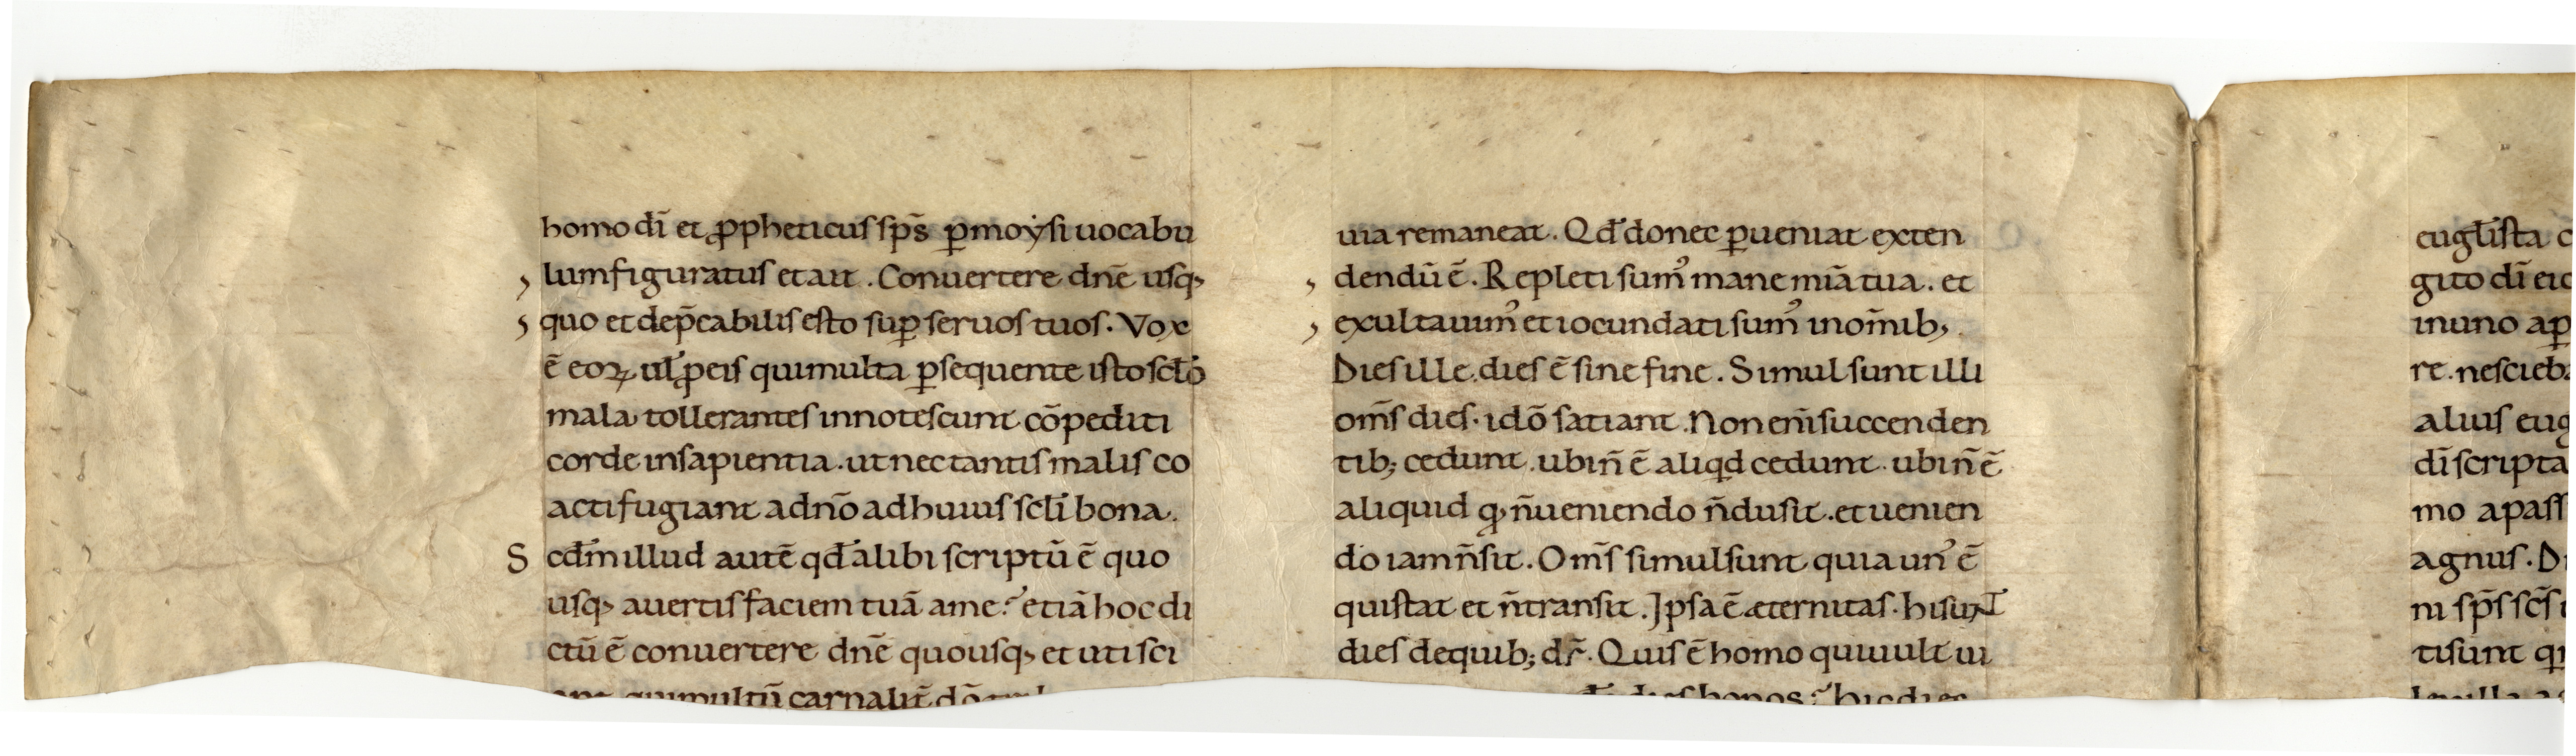 homo dī et ꝓpheticus sp̄s ꝑ moẏsi uocabu
lum figuratus et ait . Conuertere dn̄e usq,
quo et dep̄cabilis esto suꝑ seruos tuos . Vox
ē eoꝝ ul̄ ꝓ eis qui multa ꝑsequente isto scl̄o
mala tollerantes innotescunt cōpediti
corde in sapientia . ut nec tantis malis co
acti fugiant a dn̄o ad huius scl̄i bona .
S cd̄m illud autē qd̄ alibi scriptū ē quo
usq, auertis faciem tuā a me : etiā hoc di
ctū ē conuertere dn̄e quousq, et uti sci
qui multū carnalit̄
uia remaneat . Qd̄ donec ꝑueniat exten
dendū ē . Repleti sum᾽ mane mīa tua . et
exultauim᾽ et iocundati sum᾽ in om̄ib,
Dies ille . dies ē sine fine . Simul sunt illi
om̄s dies . idō satiant . Non eni̅ succeden
tib; cedunt . ubi n̄ ē aliqd cedunt . ubi n̄ ē
aliquid q, n̄ ueniendo n̄dū sit . et uenien
do iam n̄ sit . Om̄s simul sunt quia un᾽ ē
qui stat et n̄ transit . Ipsa ē æternitas . hi sunt
dies de quib; dr̄ . Quis ē homo qui uult ui
dies bonos : hic dies
euḡlista
gito dī
in uno
re . nescieb
alius
dī scripta
mo a pass
agnus .
ni sp̄s sc̄s
ti sunt